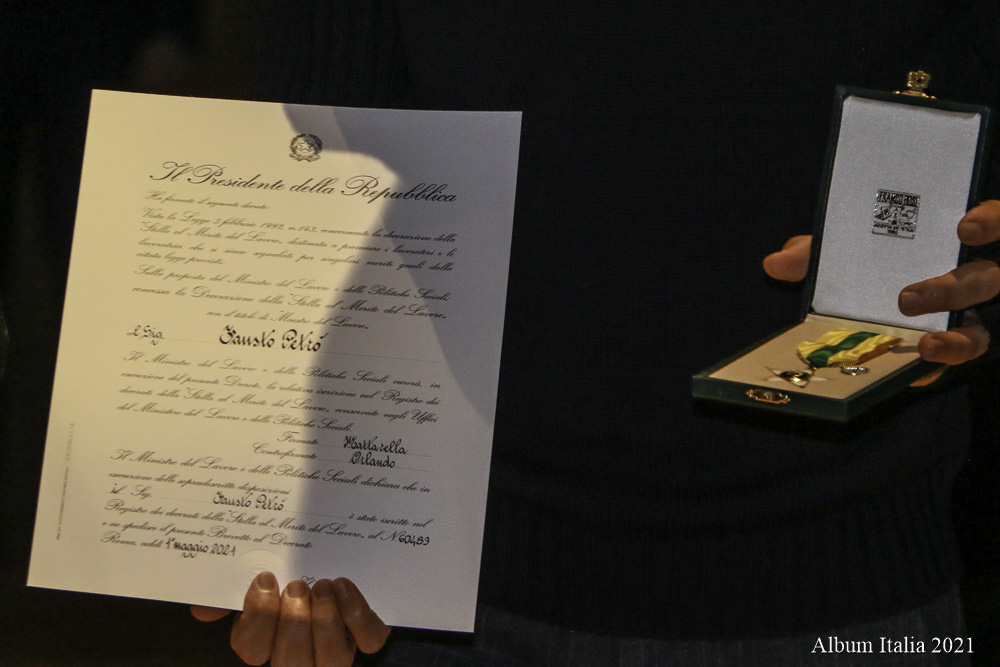 Il Presidente della Repubblica
Ha firmato il seguente decreto:
Vista la Legge 5 febbraio 1992, n. 143, concernente la decorazione della
Stella al Merito del Lavoro, destinata a premiare i lavoratori e le
lavoratrici che si siano segnalati per singolari meriti quali dalla
citata legge previsti;
Sulla proposta del Ministro del Lavoro e delle Politiche Sociali,
concessa la Decorazione della Stella al Merito del Lavoro,
con il titolo di Maestro del Lavoro,
al Sig. Fausto Petró
Il Ministro del Lavoro e delle Politiche Sociali curerà, in
esecuzione del presente Decreto, la relativa iscrizione nel Registro dei
decorati della Stella al Merito del Lavoro, conservato negli Uffici
del Ministero del Lavoro e delle Politiche Sociali.
Firmato Mattarella
Controfirmato Orlando
Il Ministro del Lavoro e delle Politiche Sociali dichiara che in
esecuzione delle sopradescritte disposizioni
il Sig. Fausto Petró è stato iscritto nel
Registro dei decorati della Stella al Merito del Lavoro, al N. 60483
e ne spedisce il presente Brevetto al Decorato
Roma, addì 1° maggio 2021
Album Italia 2021